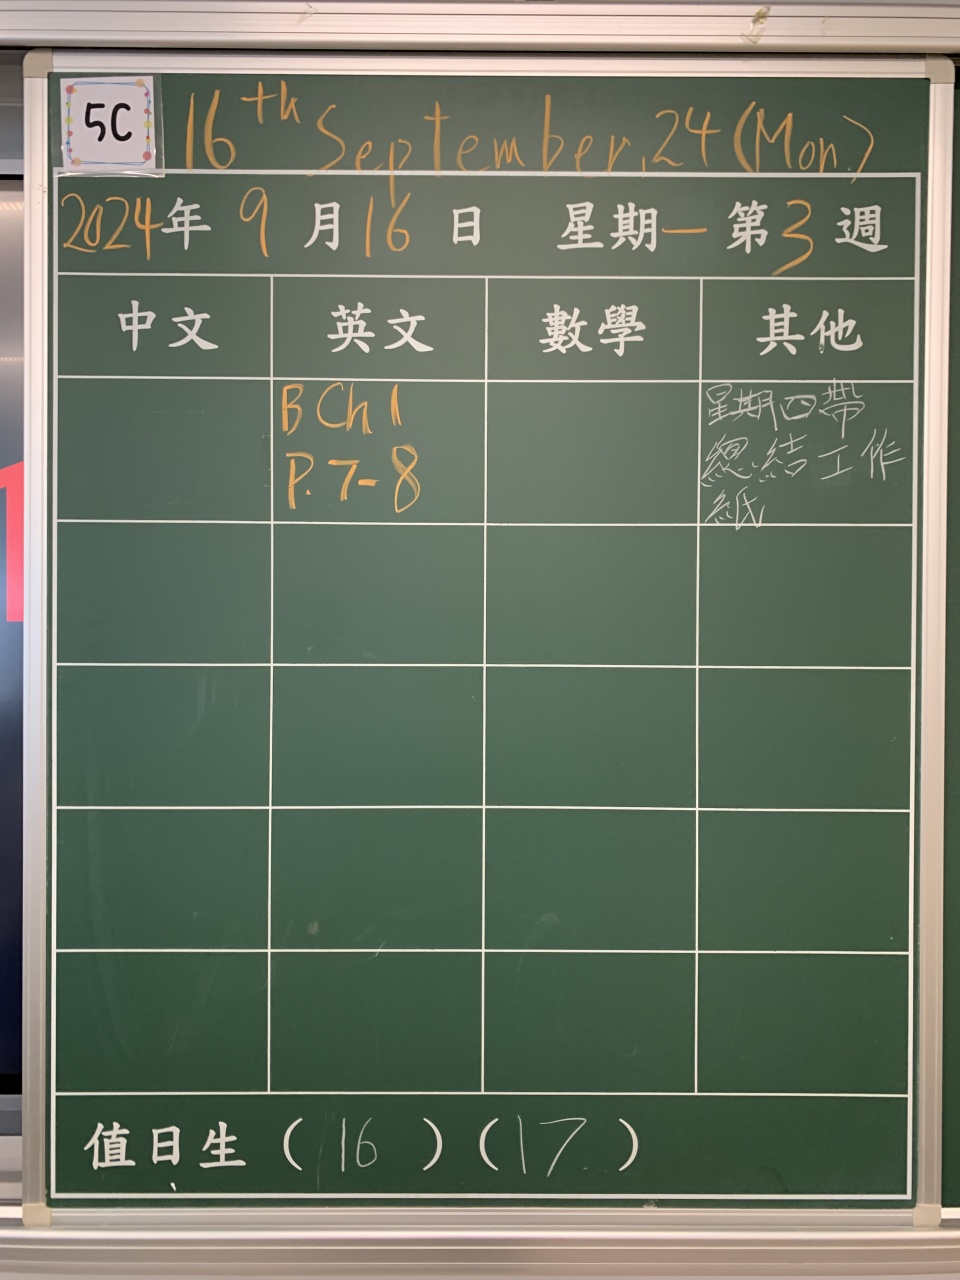 5C
16th September, 24 (Mon.)
2024年 9月16日 星期一 第3週
中文 英文 數學 其他
B Ch 1
P. 7-8
星期四帶
總結工作
紙
值日生 (16) (17)